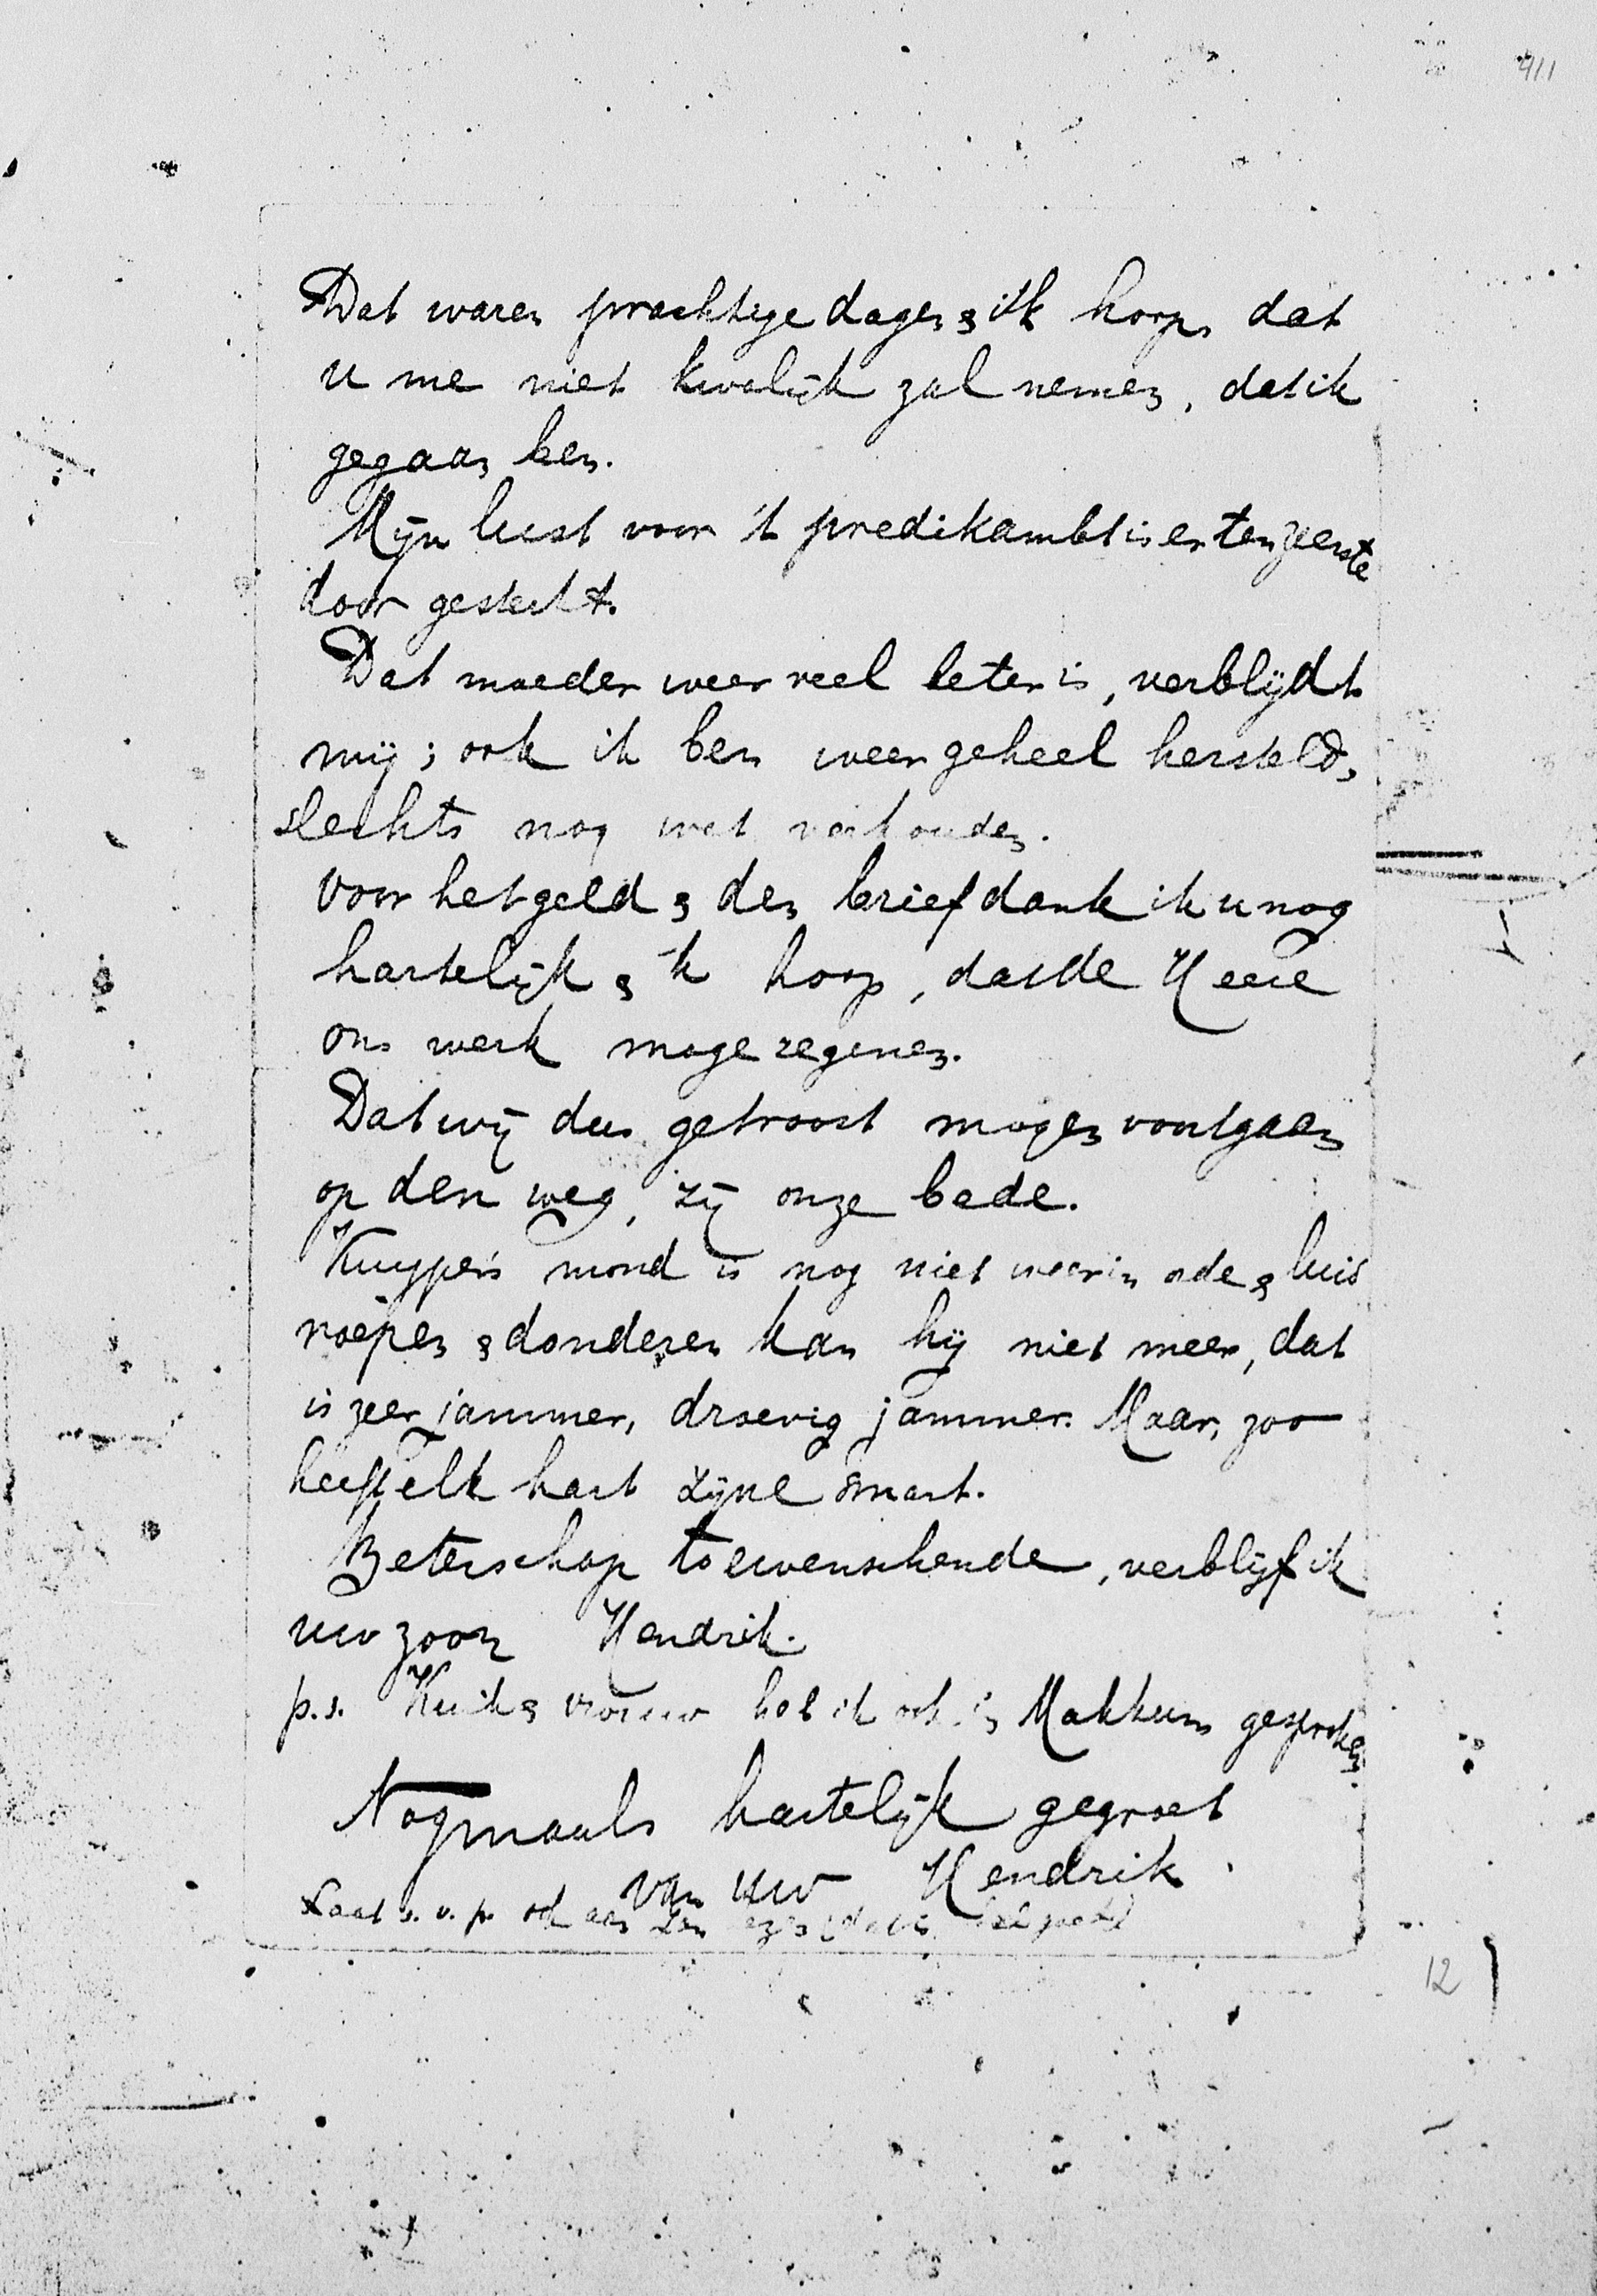 411
Dat waren prachtige dagen & ik hoop dat
u me niet kwalijk zal nemen, dat ik
gegaan ben.
Mijn lust voor 't predikambt is er ten zeerste
door gesterkt.
Dat moeder weer veel beter is, verblijdt
mij; ook ik ben weer geheel hersteld,
slechts nog wat verkouden.
Voor het geld & den brief dank ik u nog
hartelijk & 'k hoop, dat de Heere
ons werk moge zegenen.
Dat wij dus getroost mogen voortgaan
op den weg, zij onze bede.
Kuyper's mond is nog niet weer in orde & luid
roepen & donderen kan hij niet meer, dat
is zeer jammer, droevig jammer. Maar, zoo
heeft elk hart zijne smart.
Beterschap toewenschende, verblijf ik
uw zoon Hendrik.
p.s. & vrouw heb ik ook in Makkum gesproken
Nogmaals hartelijk gegroet
van uw Hendrik.
Laat s.v.p. ook aan
12